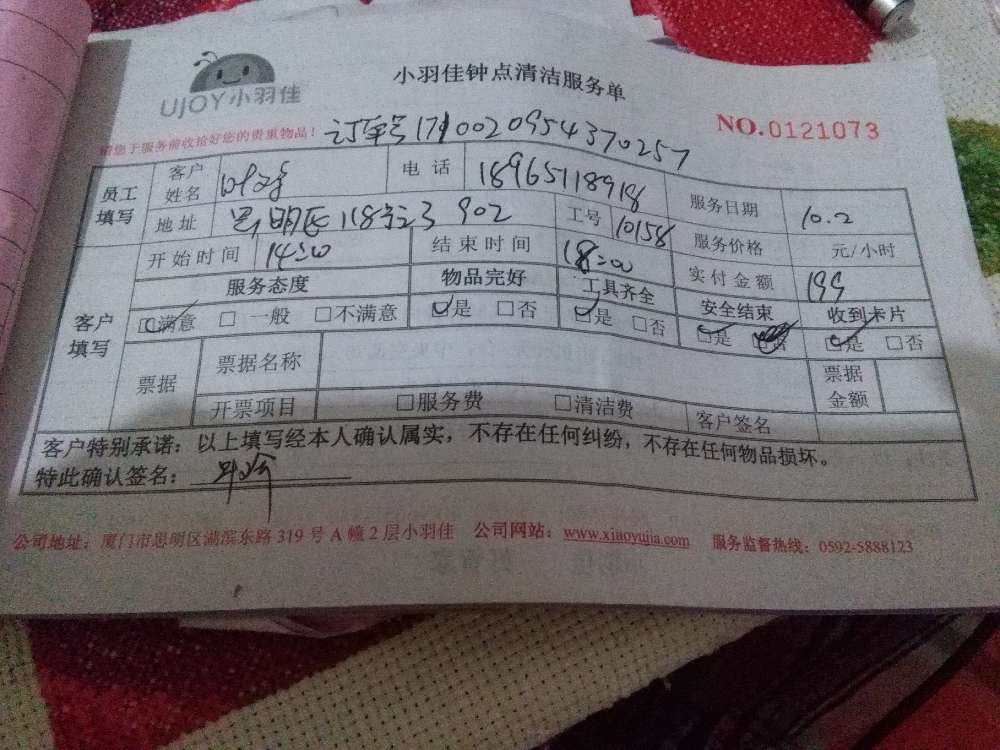 UJOY小羽佳
小羽佳钟点清洁服务单
NO.0121073
请您于服务前收拾好您的贵重物品！ 订单号171002095437025
员工填写 客户姓名 电话 18965118918 服务日期 10.2
地址 118号 902 工号 10158 服务价格 元/小时
开始时间 14:00 结束时间 18:00 实付金额 199
客户填写 服务态度 物品完好 工具齐全 安全结束 收到卡片
□满意 □一般 □不满意 □是 □否 □是 □否 □是 □否 □是 □否
票据 票据名称 票据金额
开票项目 □服务费 □清洁费 客户签名
客户特别承诺：以上填写经本人确认属实，不存在任何纠纷，不存在任何物品损坏。
特此确认签名：
公司地址：厦门市思明区湖滨东路319号A幢2层小羽佳 公司网站：www.xiaoyujia.com 服务监督热线：0592-5888123